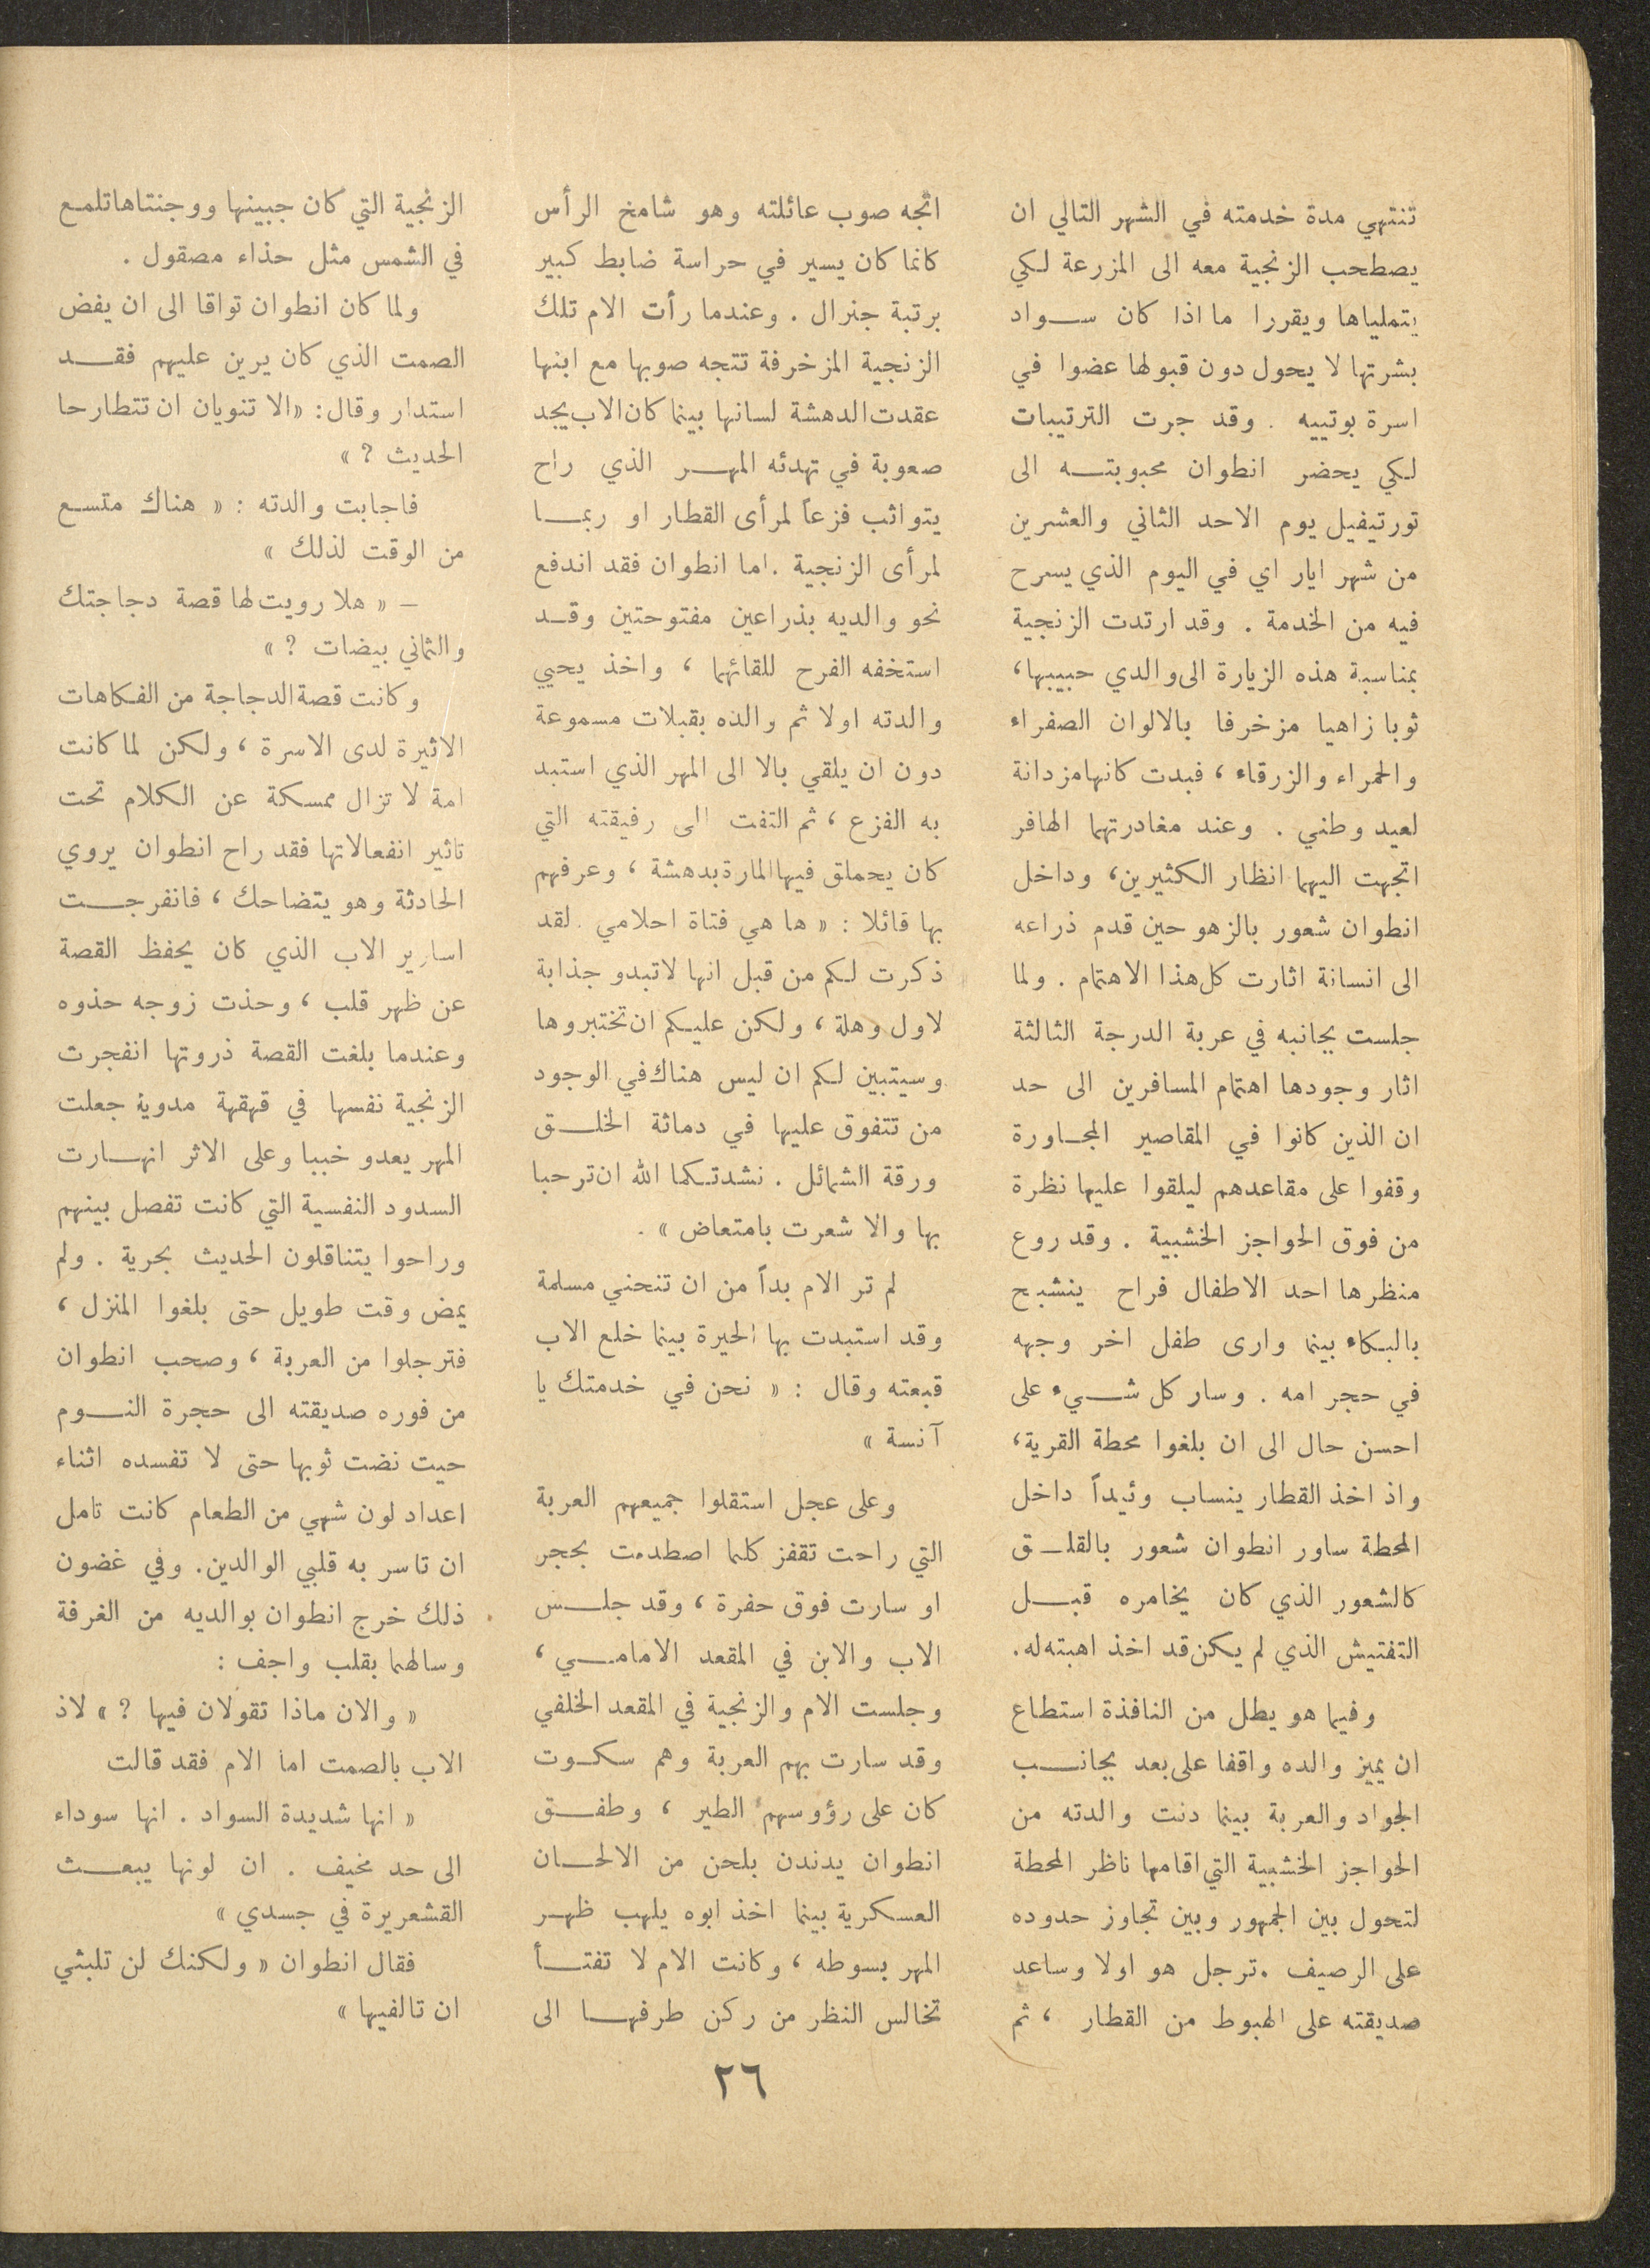 تنتهي مدة خدمته في الشهر التالي ان
يصطحب الزنجية معه الى المزرعة لكي
يتملياها ويقررا ما اذا كان سواد
بشرتها لا يحول دون قبولها عضوا في
اسرة بوتييه . وقد جرت الترتيبات
لكي يحضر انطوان محبوبته الى
تورتيفيل يوم الاحد الثاني والعشرين
من شهر ايار اي في اليوم الذي يسرح
فيه من الخدمة . وقد ارتدت الزنجية
بمناسبة هذه الزيارة الى والدي حبيبها،
ثوبا زاهيا مزخرفا بالالوان الصفراء
والحمراء والزرقاء ، فبدت كانها مزدانة
لعيد وطني . وعند مغادرتهما الهافر
اتجهت اليهما انظار الكثيرين، وداخل
انطوان شعور بالزهو حين قدم ذراعه
الى انسانة اثارت كل هذا الاهتمام . ولما
جلست بجانبه في عربة الدرجة الثالثة
اثار وجودها اهتمام المسافرين الى حد
ان الذين كانوا في المقاصير المجاورة
وقفوا على مقاعدهم ليلقوا عليها نظرة
من فوق الحواجز الخشبية . وقد روع
منظرها احد الاطفال فراح ينشج
بالبكاء بينما وارى طفل اخر وجهه
في حجر امه . وسار كل شيء على
احسن حال الى ان بلغوا محطة القرية،
واذ اخذ القطار ينساب وئيداً داخل
المحطة ساور انطوان شعور بالقلق
كالشعور الذي كان يخامره قبل
التفتيش الذي لم يكن قد اخذ اهبته له.
وفيما هو يطل من النافذة استطاع
ان يميز والده واقفا على بعد بجانب
الجواد والعربة بينما دنت والدته من
الحواجز الخشبية التي اقامها ناظر المحطة
لتحول بين الجمهور وبين تجاوز حدوده
على الرصيف . ترجل هو اولا وساعد
صديقته على الهبوط من القطار ، ثم
اتجه صوب عائلته وهو شامخ الرأس
كانما كان يسير في حراسة ضابط كبير
برتبة جنرال . وعندما رأت الام تلك
الزنجية المزخرفة تتجه صوبها مع ابنها
عقدت الدهشة لسانها بينما كان الاب يجد
صعوبة في تهدئه المهر الذي راح
يتواثب فزعاً لمرأى القطار او ربما
لمرأى الزنجية . اما انطوان فقد اندفع
نحو والديه بذراعين مفتوحتين وقد
استخفه الفرح للقائهما ، واخذ يحيي
والدته اولا ثم والده بقبلات مسموعة
دون ان يلقي بالا الى المهر الذي استبد
به الفزع ، ثم التفت الى رفيقته التي
كان يحملق فيها المارة بدهشة ، وعرفهم
بها قائلا : « ها هي فتاة احلامي . لقد
ذكرت لكم من قبل انها لا تبدو جذابة
لاول وهلة ، ولكن عليكم ان تختبروها
وسيتبين لكم ان ليس هناك في الوجود
من تتفوق عليها في دماثة الخلق
ورقة الشمائل . نشدتكما الله ان ترحبا
بها والا شعرت بامتعاض » .
لم تر الام بداً من ان تنحني مسلمة
وقد استبدت بها الحيرة بينما خلع الاب
قبعته وقال : « نحن في خدمتك يا
آنسة »
وعلى عجل استقلوا جميعهم العربة
التي راحت تقفز كلما اصطدمت بحجر
او سارت فوق حفرة ، وقد جلس
الاب والابن في المقعد الامامي ،
وجلست الام والزنجية في المقعد الخلفي
وقد سارت بهم العربة وهم سكوت
كان على رؤوسهم الطير ، وطفق
انطوان يدندن بلحن من الالحان
العسكرية بينما اخذ ابوه يلهب ظهر
المهر بسوطه ، وكانت الام لا تفتأ
تخالس النظر من ركن طرفها الى
الزنجية التي كان جبينها ووجنتاها تلمع
في الشمس مثل حذاء مصقول .
ولما كان انطوان تواقا الى ان يفض
الصمت الذي كان يرين عليهم فقد
استدار وقال : «الا تنويان ان تتطارحا
الحديث ؟ »
فاجابت والدته : « هناك متسع
من الوقت لذلك »
— « هلا رويت لها قصة دجاجتك
والثماني بيضات ؟ »
وكانت قصة الدجاجة من الفكاهات
الاثيرة لدى الاسرة ، ولكن لما كانت
امة لا تزال ممسكة عن الكلام تحت
تاثير انفعالاتها فقد راح انطوان يروي
الحادثة وهو يتضاحك ، فانفرجت
اسارير الاب الذي كان يحفظ القصة
عن ظهر قلب ، وحذت زوجه حذوه
وعندما بلغت القصة ذروتها انفجرت
الزنجية نفسها في قهقهة مدوية جعلت
المهر يعدو خببا وعلى الاثر انهارت
السدود النفسية التي كانت تفصل بينهم
وراحوا يتناقلون الحديث بحرية . ولم
يمض وقت طويل حتى بلغوا المنزل ،
فترجلوا من العربة ، وصحب انطوان
من فوره صديقته الى حجرة النوم
حيت نضت ثوبها حتى لا تفسده اثناء
اعداد لون شهي من الطعام كانت تامل
ان تاسر به قلبي الوالدين. وفي غضون
ذلك خرج انطوان بوالديه من الغرفة
وسالهما بقلب واجف :
« والان ماذا تقولان فيها ؟ » لاذ
الاب بالصمت اما الام فقد قالت
« انها شديدة السواد . انها سوداء
الى حد مخيف . ان لونها يبعث
القشعريرة في جسدي »
فقال انطوان « ولكنك لن تلبثي
ان تالفيها »
٢٦